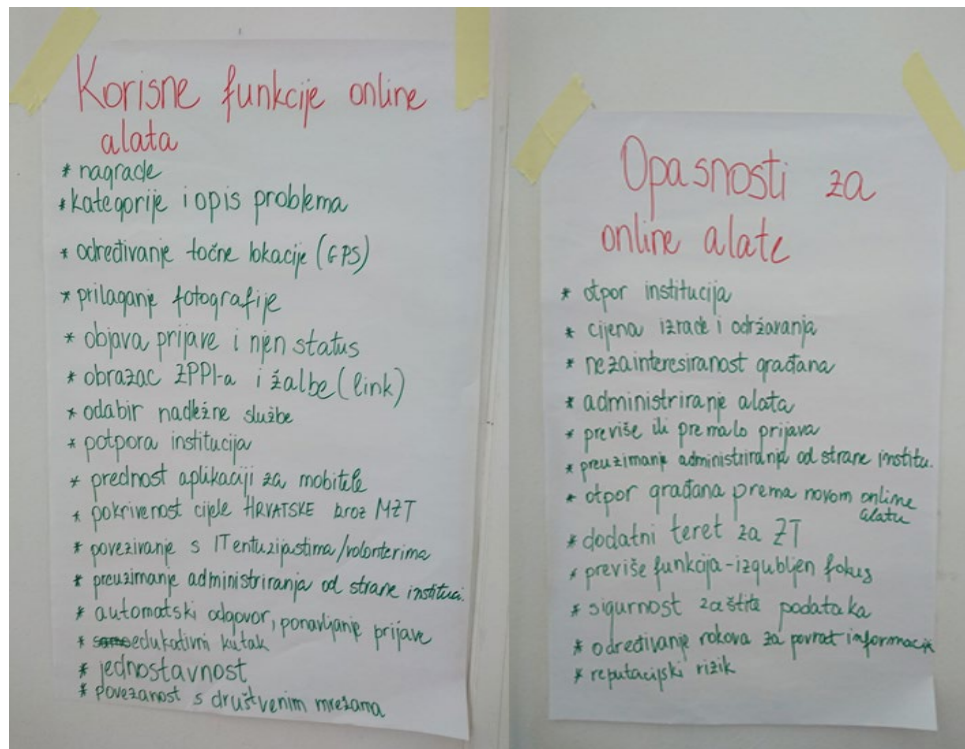 Korisne funkcije online
alata
* nagrade
* kategorije i opis problema
* određivanje točne lokacije (GPS)
* prilaganje fotografije
* objava prijave i njen status
* obrazac ZPPI-a i žalbe (link)
* odabir nadležne službe
* potpora institucija
* prednost aplikaciji za mobitele
* pokrivenost cijele HRVATSKE kroz MŽT
* povezivanje s IT entuzijastima/volonterima
* preuzimanje administriranja od strane instituci.
* automatski odgovor, ponavljanje prijave
* edukativni kutak
* jednostavnost
* povezanost s društvenim mrežama
Opasnosti za
online alate
* otpor institucija
* cijena izrade i održavanja
* nezainteresiranost građana
* administriranje alata
* previše ili premalo prijava
* preuzimanje administriranja od strane institu.
* otpor građana prema novom online
alatu
* dodatni teret za ŽT
* previše funkcija - izgubljen fokus
* sigurnost zaštite podataka
* određivanje rokova za povrat informacija
* reputacijski rizik